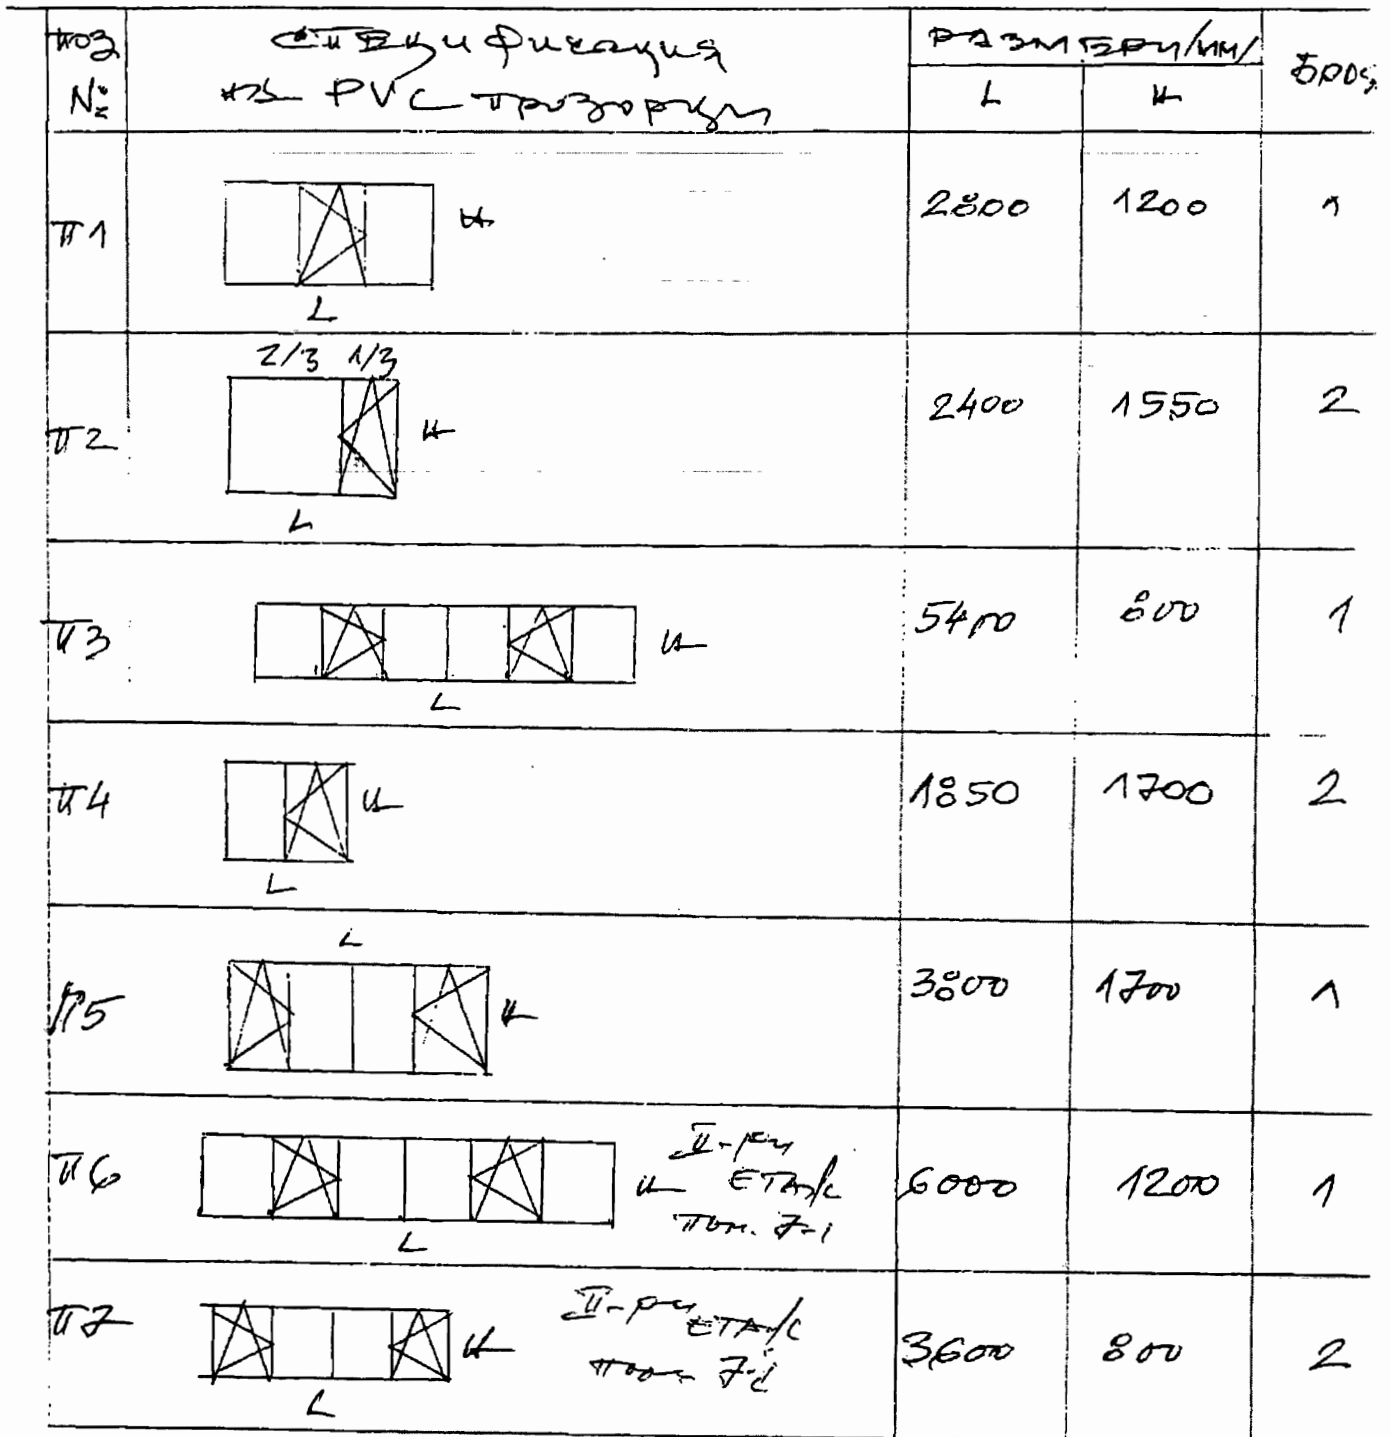 поз
№
спецификация
на PVC прозорци
РАЗМЕРИ/мм/
L
H
БРОЯ
П1
H
L
2800
1200
1
2/3 1/3
П2
H
L
2400
1550
2
П3
H
L
5400
800
1
П4
H
L
1850
1700
2
L
П5
H
3800
1700
1
П6
II-ри
H ЕТАЖ
пом.
L
6000
1200
1
П7
II-ри
ЕТАЖ
H
L
3600
800
2